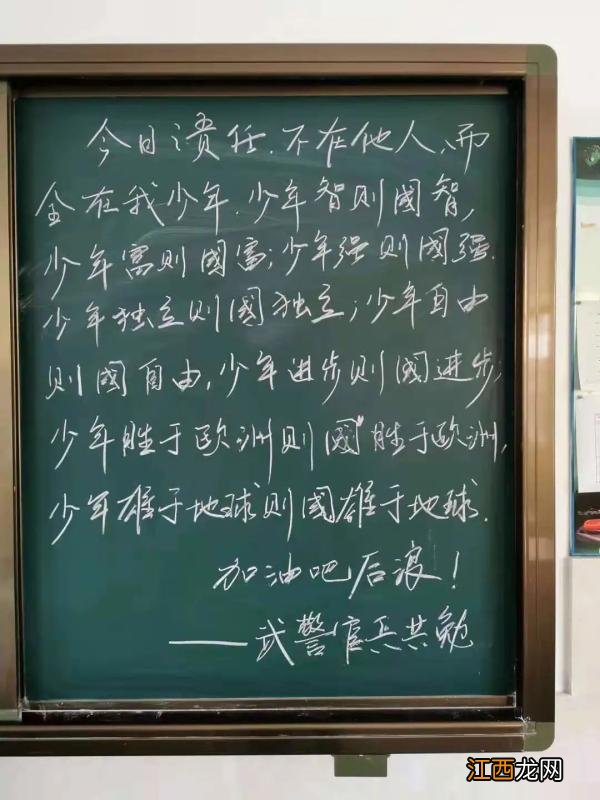 今日责任.不在他人,而
全在我少年.少年智则國智,
少年富则國富;少年强则國强.
少年独立则國独立;少年自由
则國自由,少年进步则國进步;
少年胜于欧洲则國胜于欧洲,
少年雄于地球则國雄于地球.
加油吧后浪!
——武警官兵共勉
江西龙网